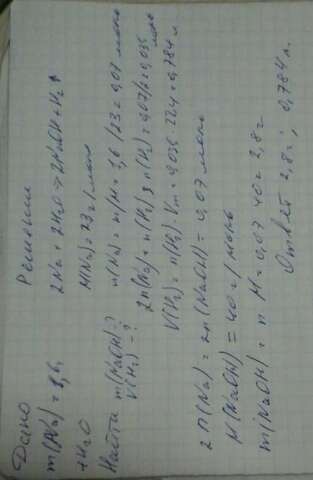 Дано
m(Na) = 1,6г
+ H2O
Найти m(NaOH)-?
V(H2) - ?
Решение
2Na + 2H2O → 2NaOH + H2↑
M(Na) = 23 г/моль
n(Na) = m/M = 1,6/23 = 0,07 моль
2n(Na) = n(H2) = 0,07/2 = 0,035 моль
V(H2) = n(H2) · Vm = 0,035 · 22,4 = 0,784 л
2n(Na) = 2n(NaOH) = 0,07 моль
M(NaOH) = 40 г/моль
m(NaOH) = n · M = 0,07 · 40 = 2,8 г
Ответ 2,8 г; 0,784 л.